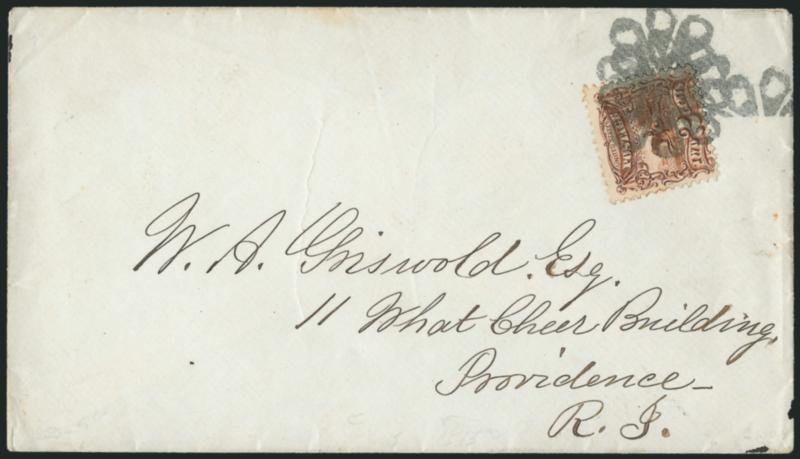 W. A. Griswold. Esq.
11 What Cheer Building,
Providence
R. I.